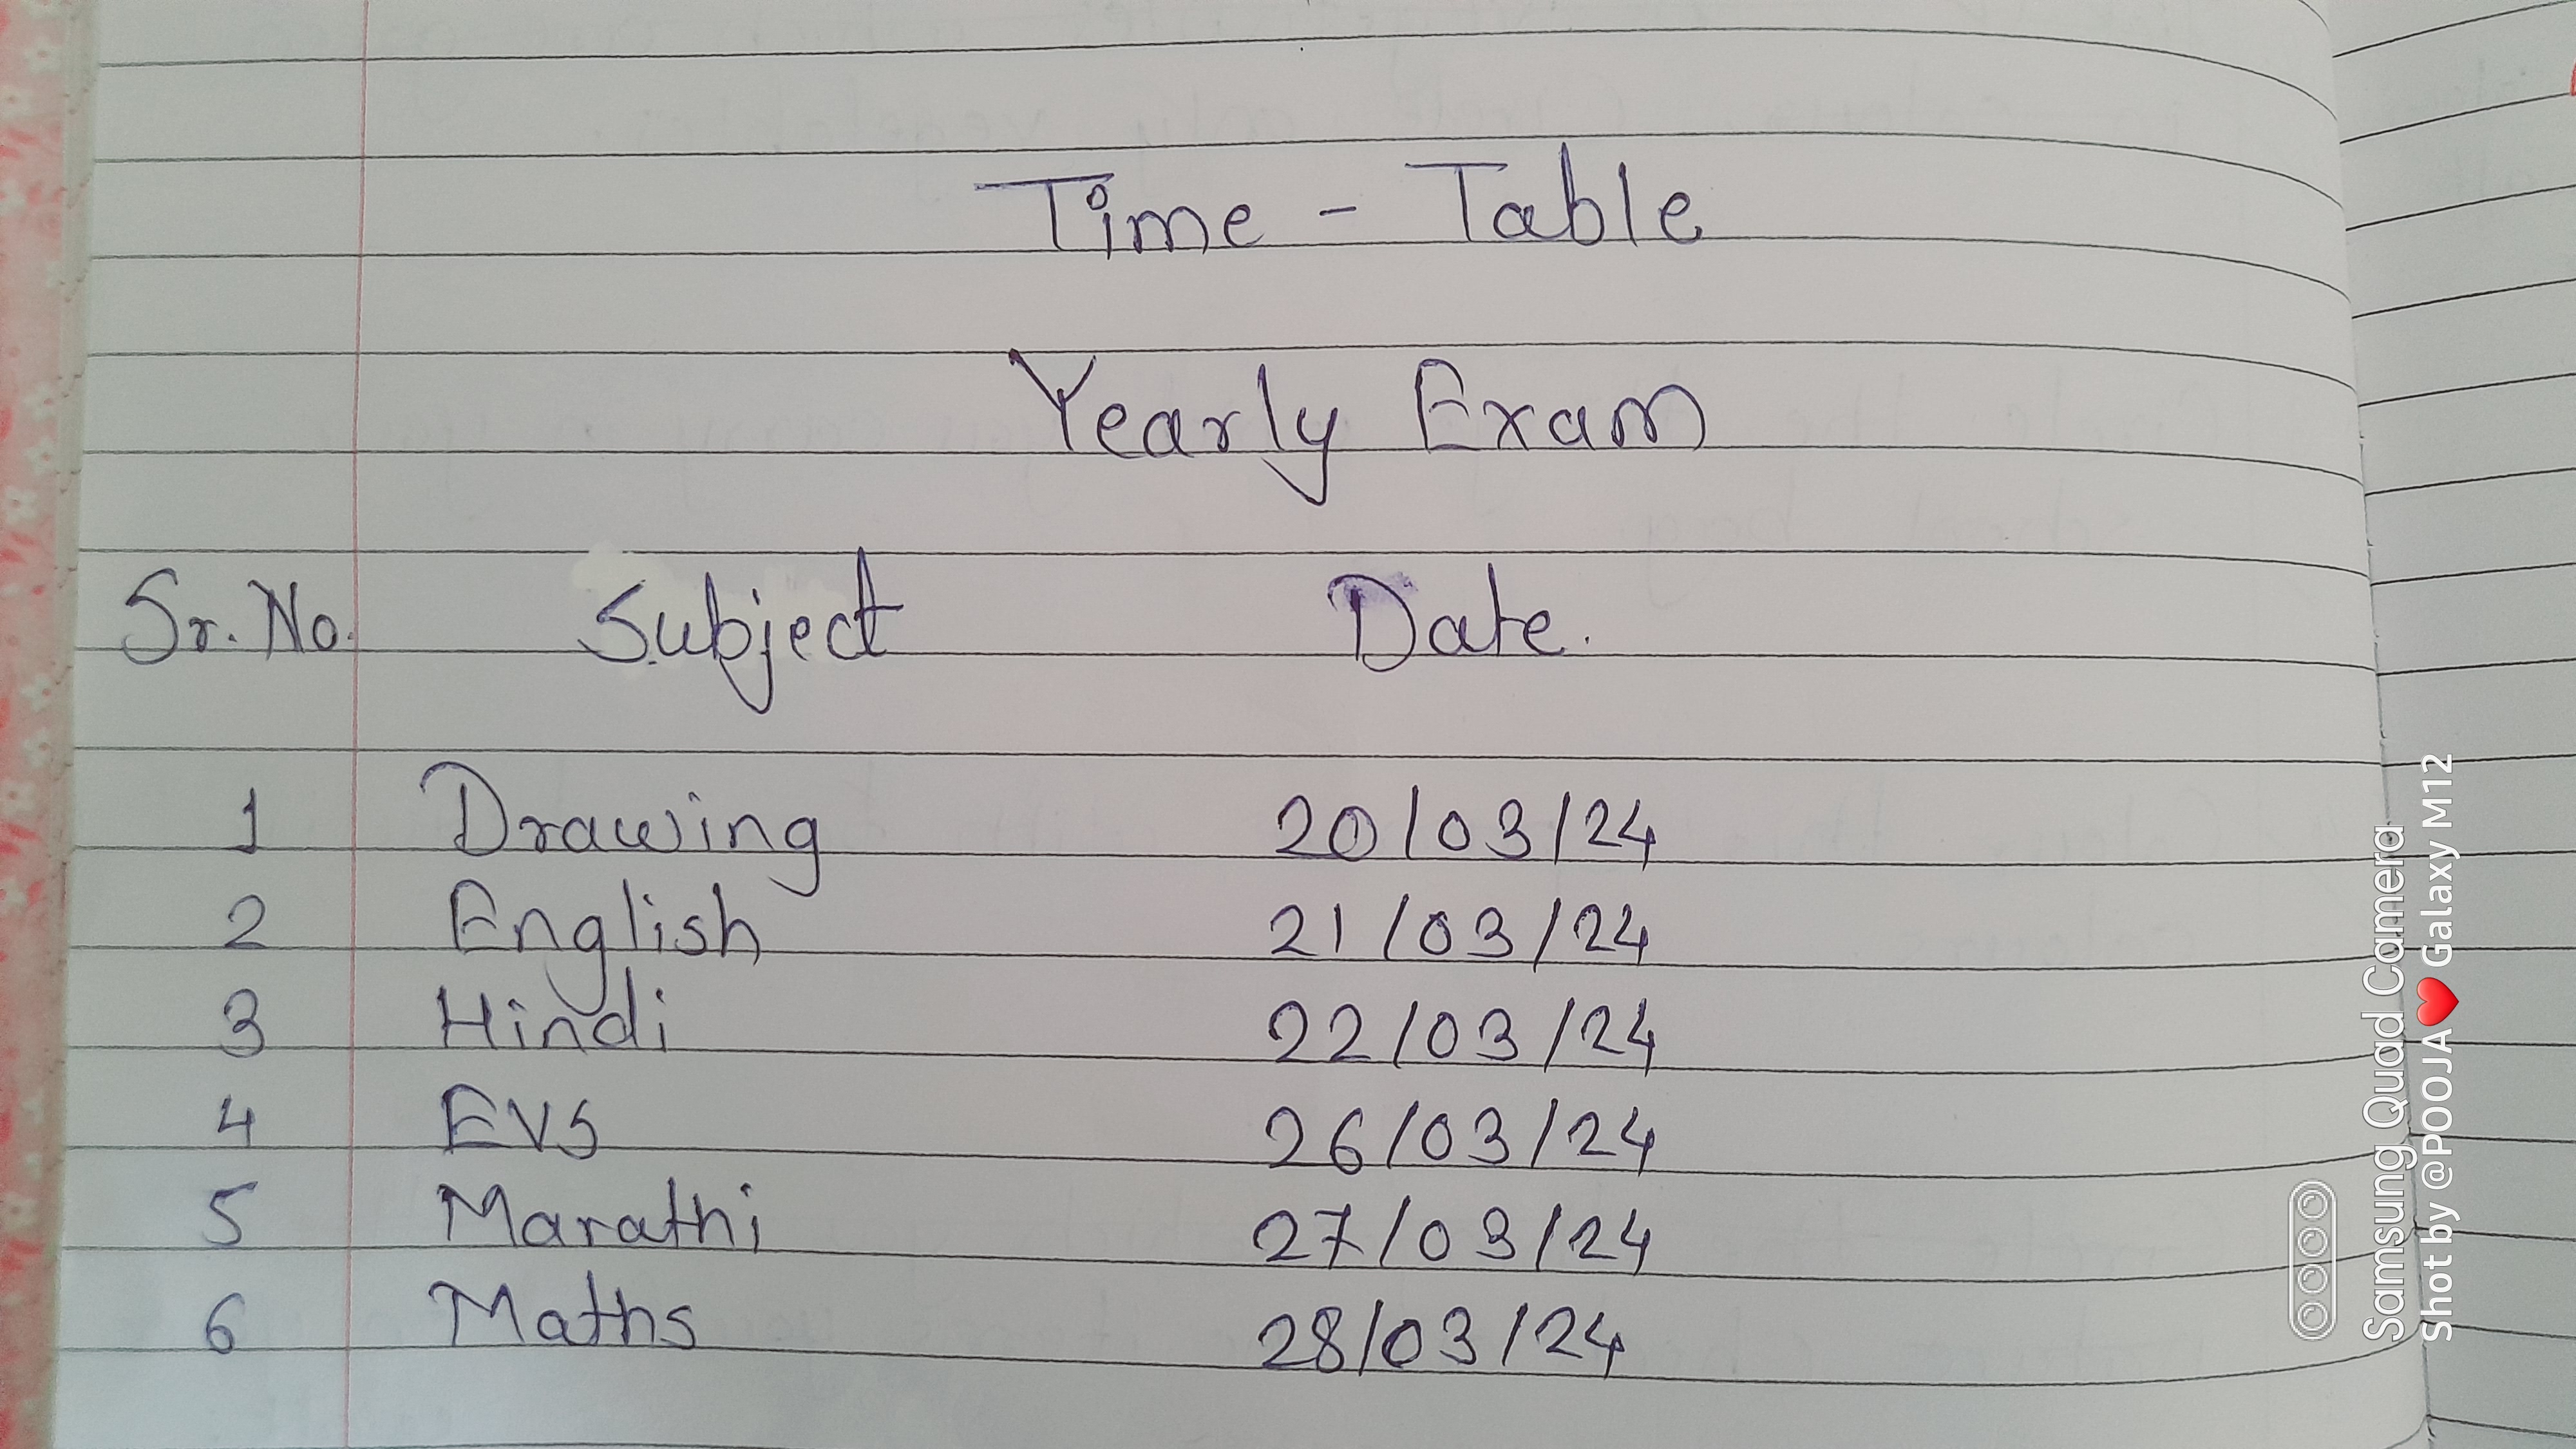 Time - Table
Yearly Exam
Sr. No. Subject Date.
1 Drawing 20/03/24
2 English 21/03/24
3 Hindi 22/03/24
4 EVS 26/03/24
5 Marathi 27/03/24
6 Maths 28/03/24
Samsung Quad Camera
Shot by @POOJA❤️Galaxy M12